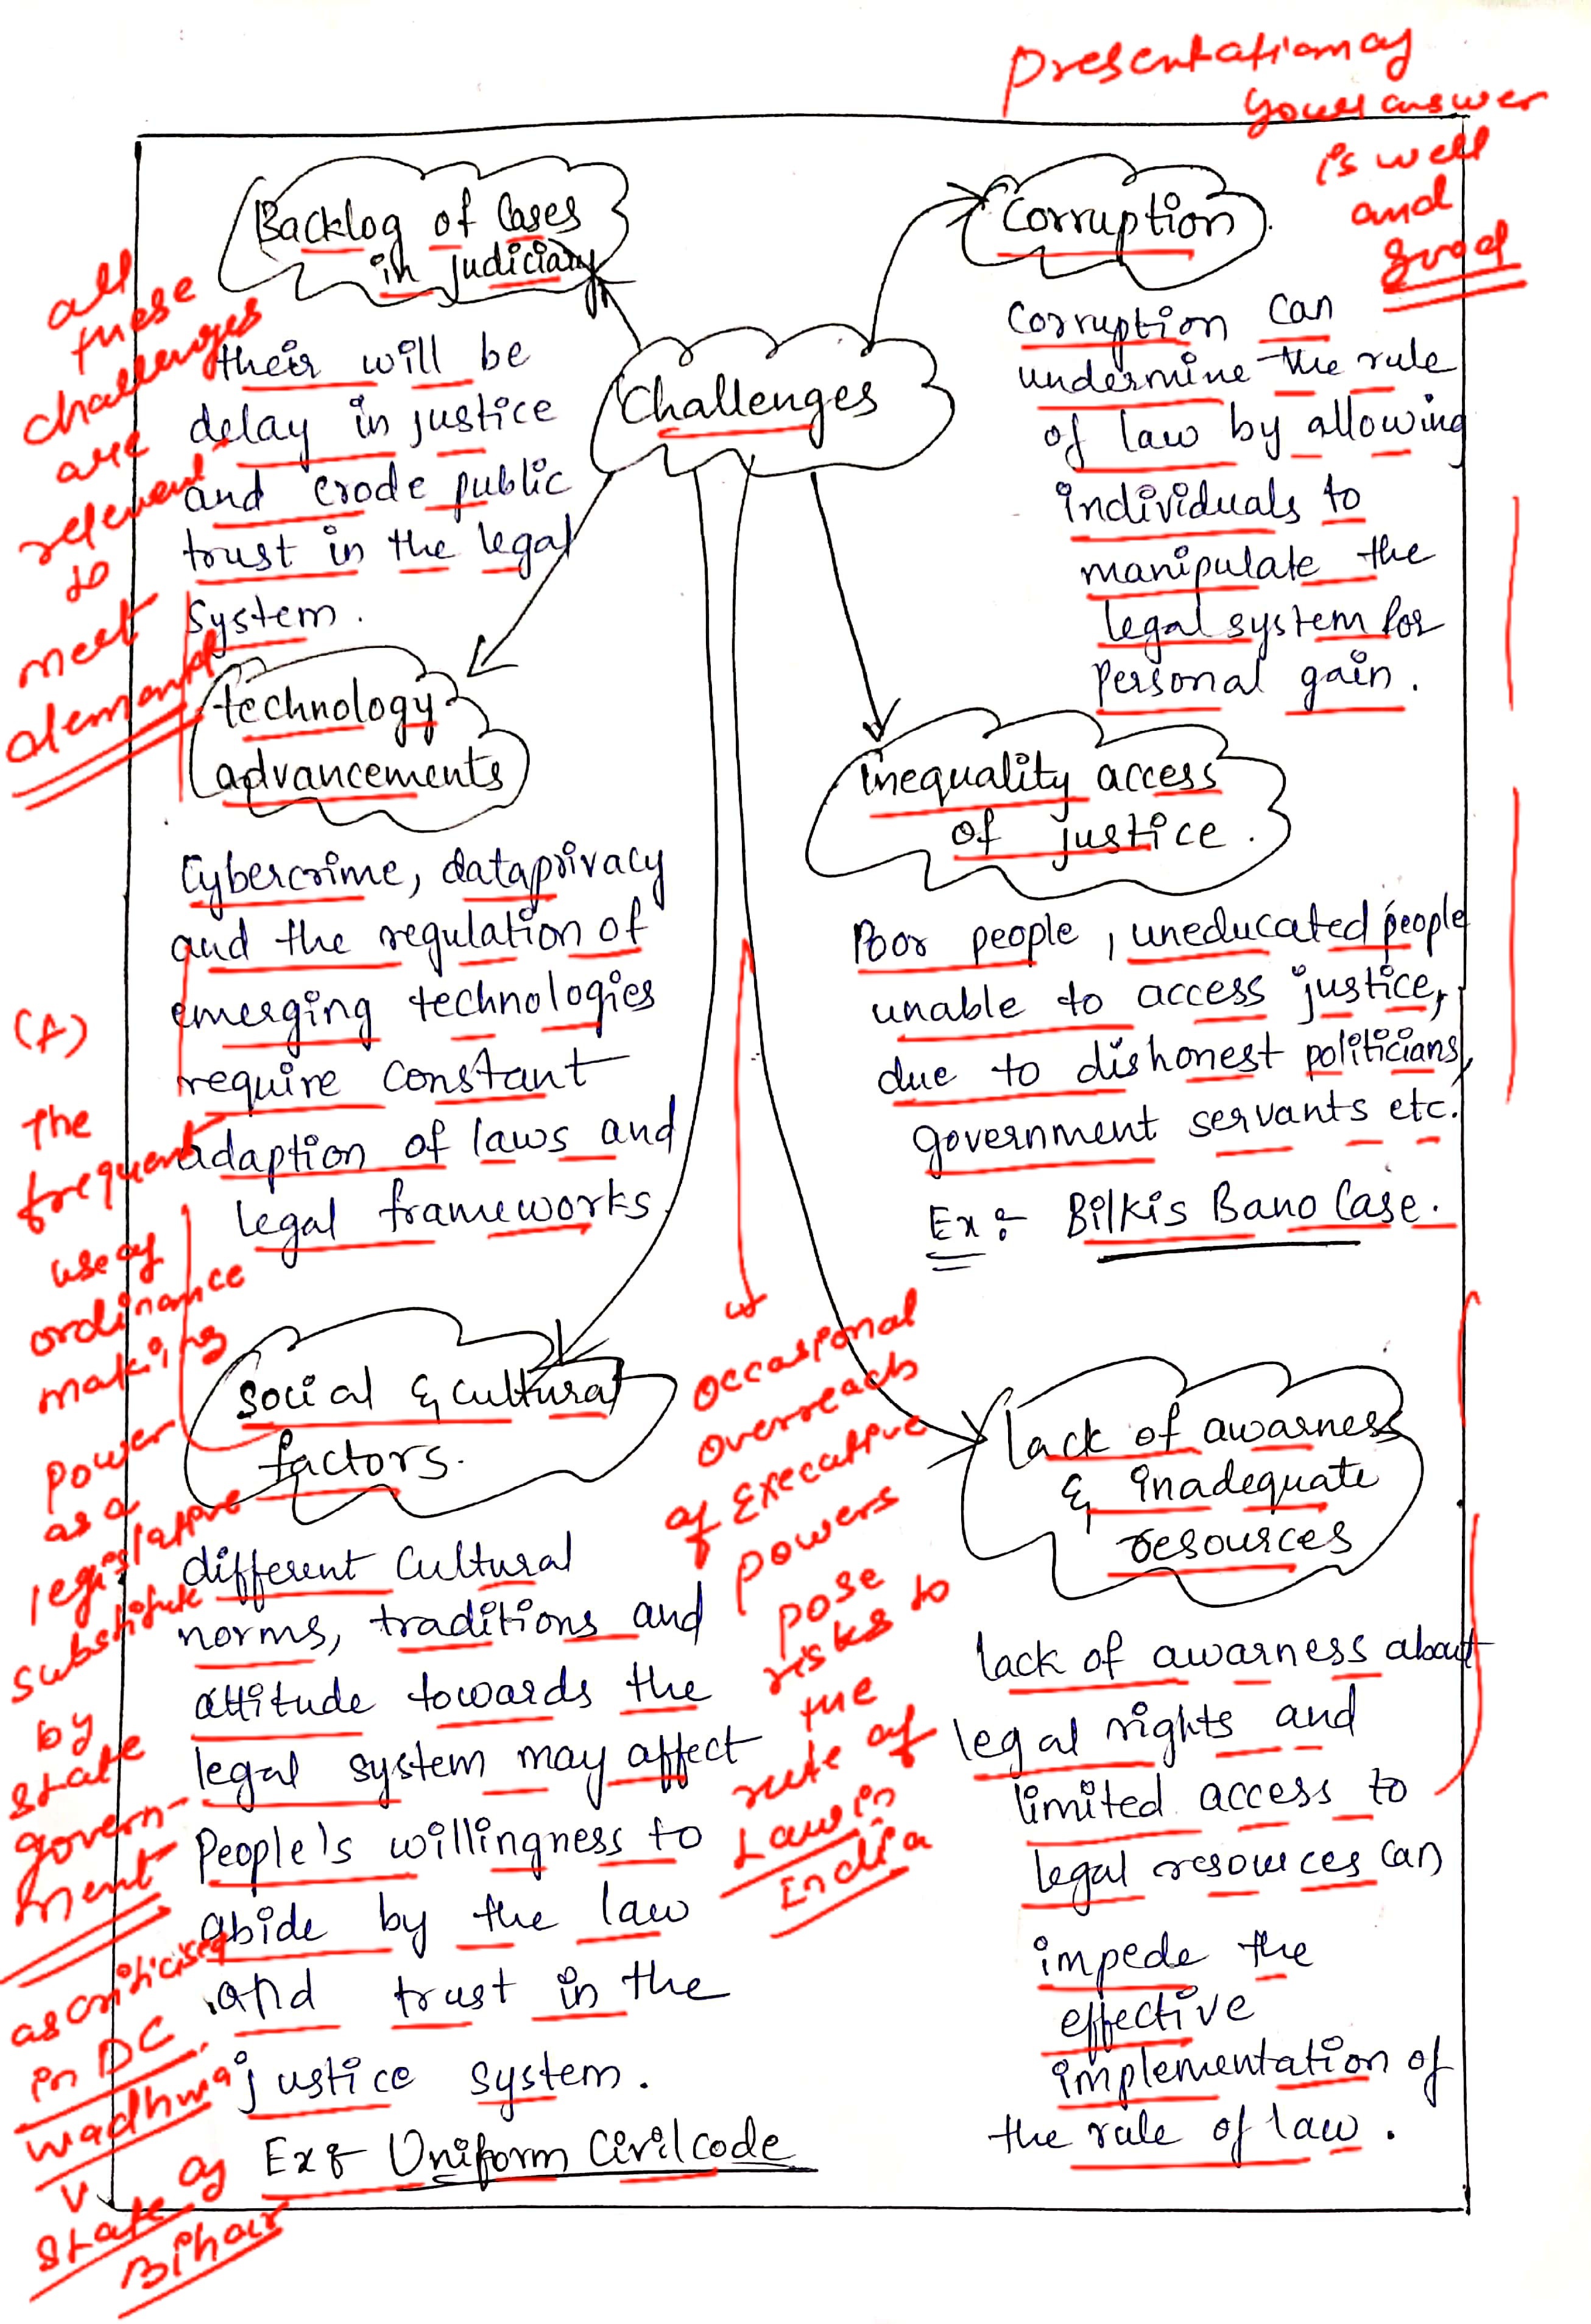 Presentation of
your answer
is well
and
good
Backlog of Cases
in judiciary
Corruption.
all
these
challenges
are
relevent
to
meet
demand
their will be
delay in justice
and erode public
trust in the legal
system.
Challenges
Corruption can
undermine the rule
of law by allowing
individuals to
manipulate the
legal system for
personal gain.
technology
advancements
Cybercrime, dataprivacy
and the regulation of
emerging technologies
require constant
adaption of laws and
legal frameworks.
inequality access
of justice.
Poor people, uneducated people
unable to access justice,
due to dishonest politicians,
government servants etc.
Ex:- Bilkis Bano Case.
(A)
The
frequent
use of
ordinance
making
power
as a
legislative
substitute
by
state
govern-
ment
as criticised
in DC
wadhwa
v
state of
Bihar
Social & cultural
factors.
different cultural
norms, traditions and
attitude towards the
legal system may affect
People's willingness to
abide by the law
and trust in the
justice system.
Ex:- Uniform Civil code
occasional
overreach
of Executive
powers
pose
risks to
the
rule of
Law in
India
lack of awarness
& inadequate
resources
lack of awarness about
legal rights and
limited access to
legal resources can
impede the
effective
implementation of
the rule of law.